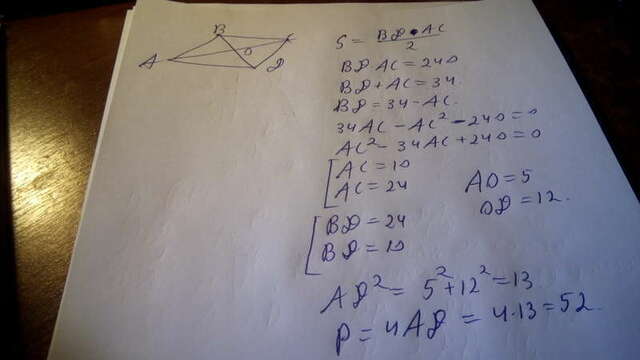 B
C
A
O
D
S = BD • AC / 2
BD AC = 240
BD + AC = 34.
BD = 34 - AC.
34AC - AC² - 240 = 0
AC² - 34AC + 240 = 0
[ AC = 10
AC = 24
AO = 5
OD = 12.
[ BD = 24
BD = 10
AD² = 5² + 12² = 13
P = 4AD = 4·13 = 52